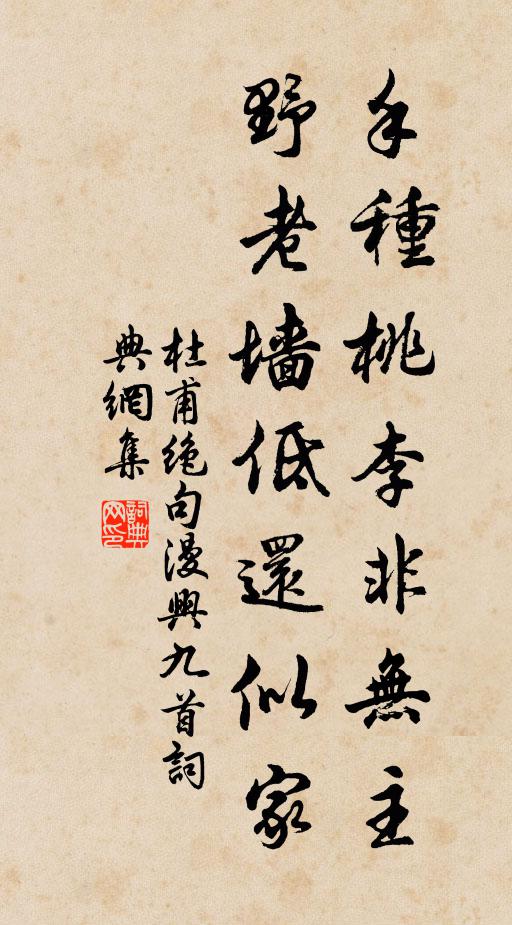 手種桃李非無主
野老墻低還似家
杜甫絶句漫興九首詞
典網集
詞典
网印